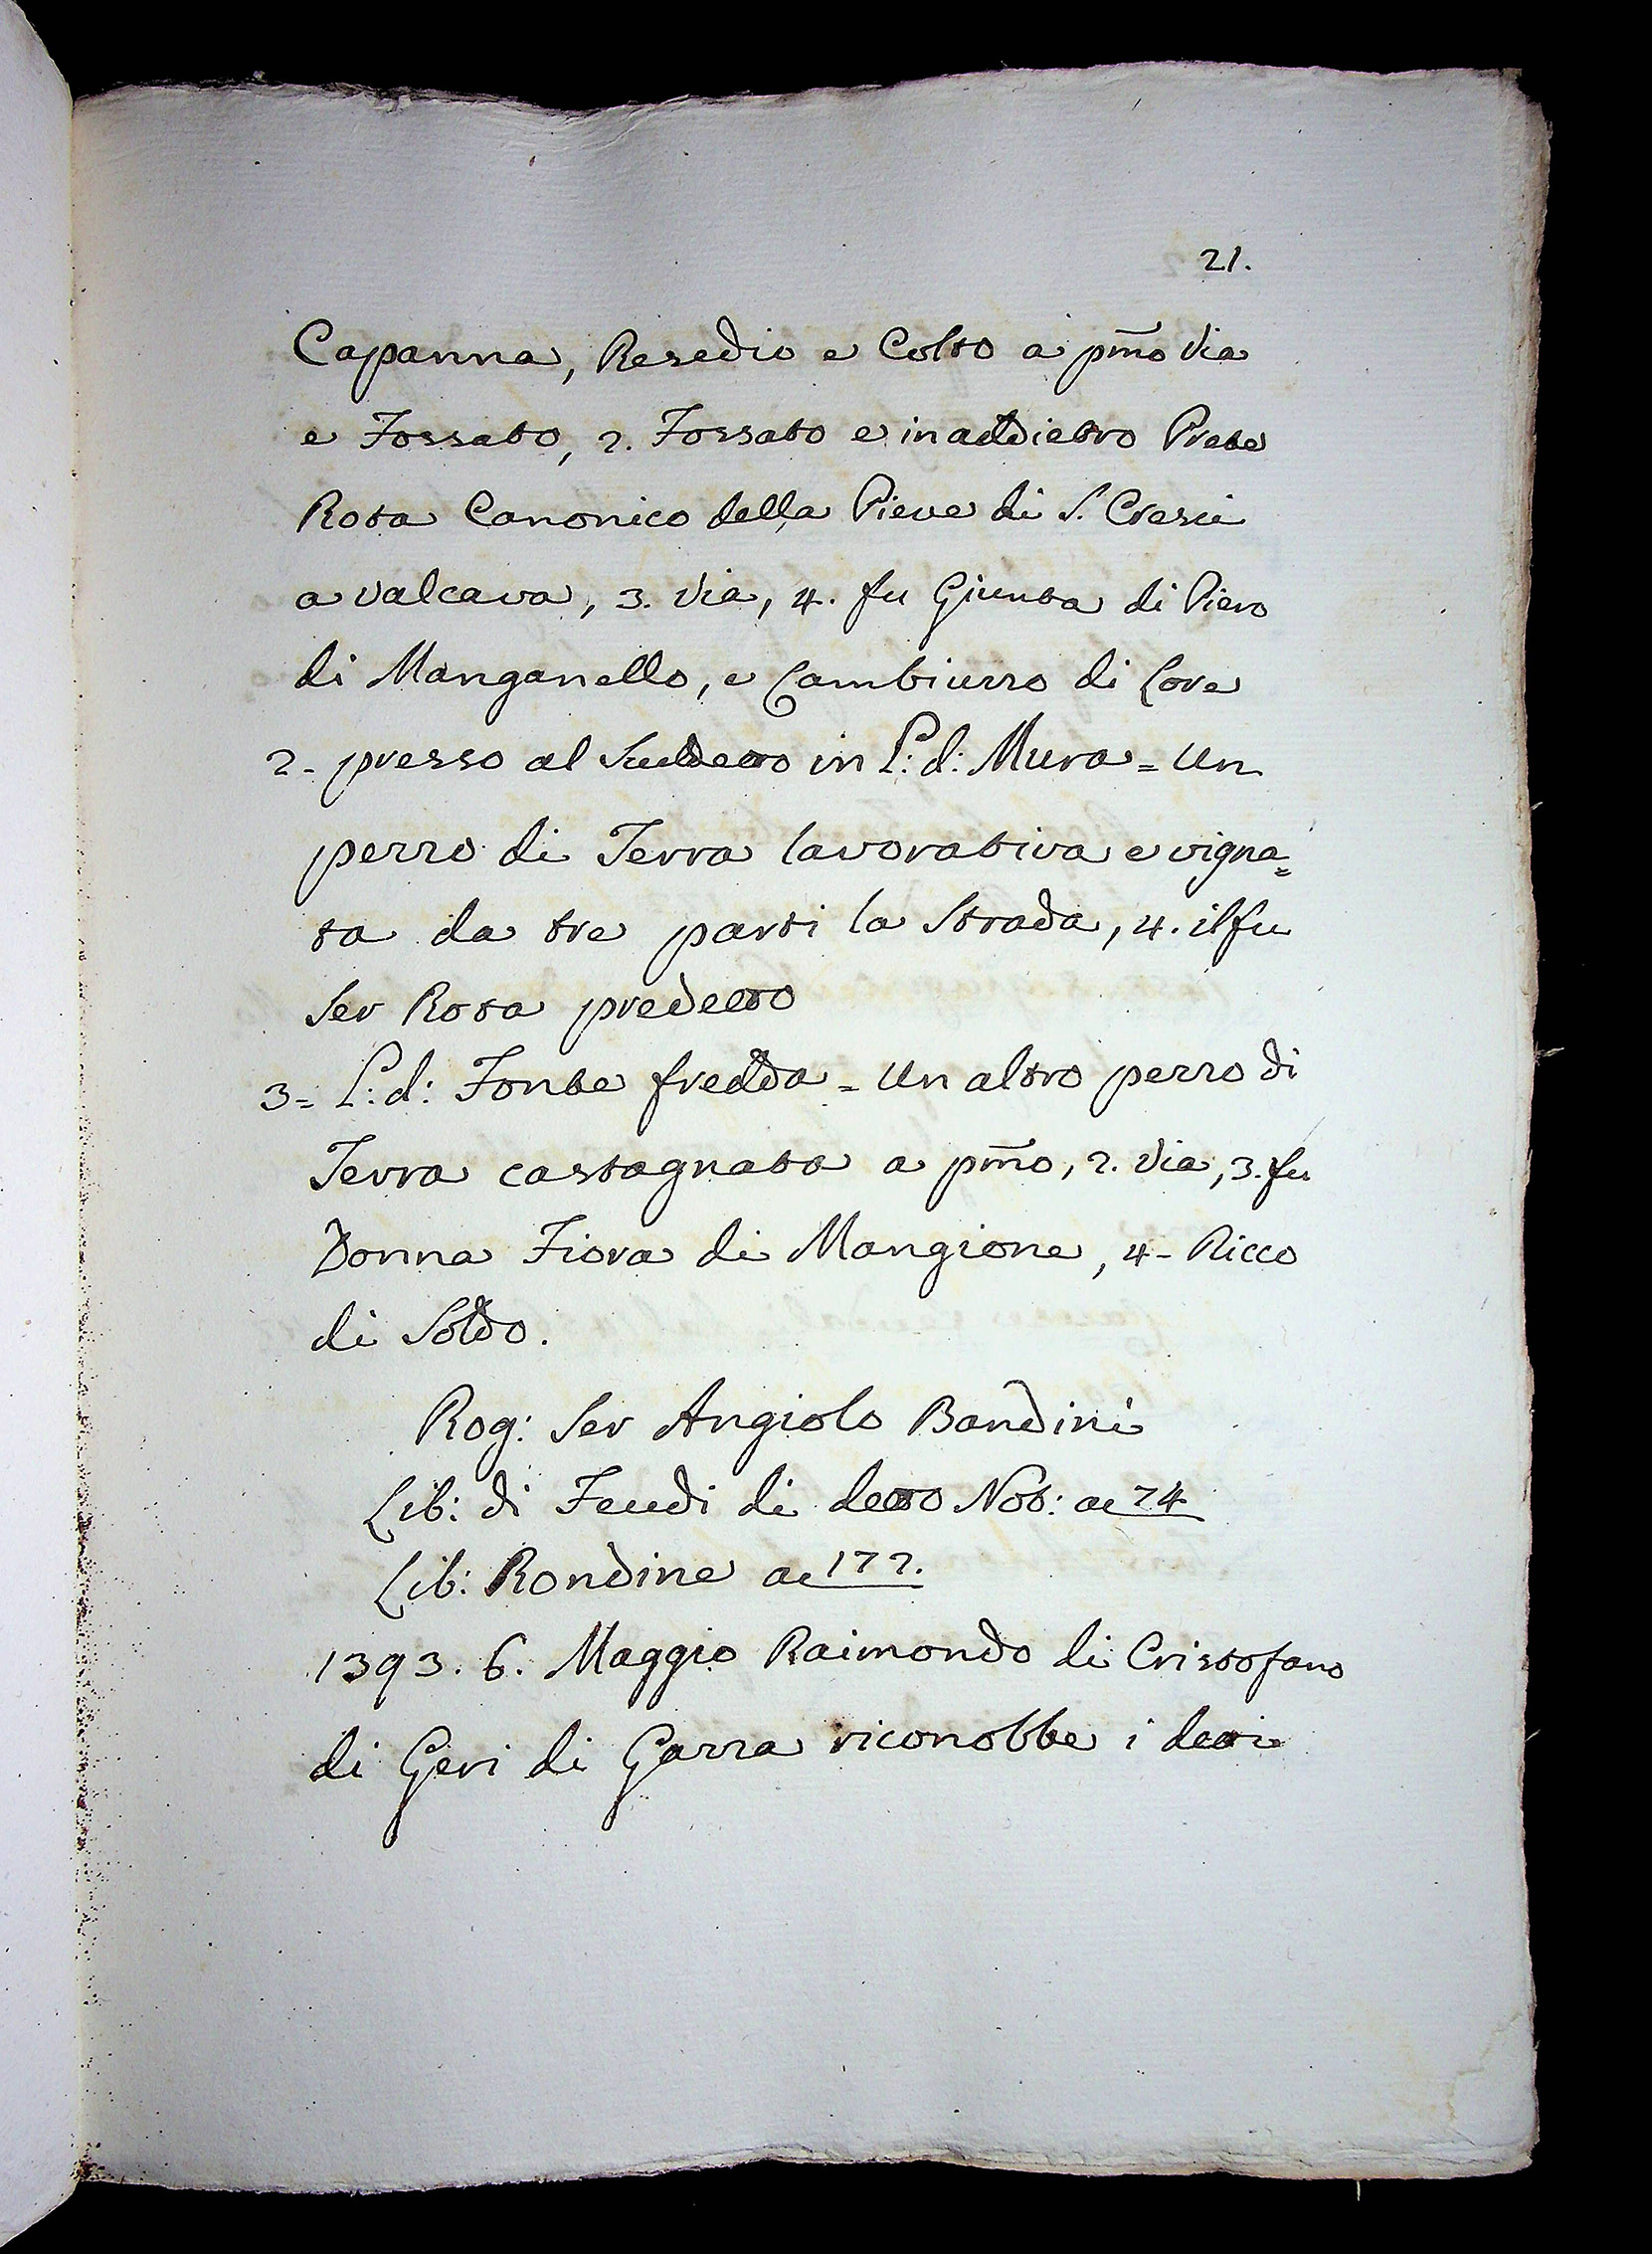 21.
Capanna, Resedio e Colto a pm̃o Via
e Fossato, 2. Fossato e inaddietro Prete
Rota Canonico della Pieve di S. Cresci
a Valcava, 3. Via, 4. fu Giunta di Piero
di Manganello, e Cambiuzzo di Lore
2- presso al Suddetto in L: d: Mura = Un
pezzo di Terra lavorativa e vigna=
ta da tre parti la Strada, 4. il fu
Ser Rota predetto
3= L: d: Fonte fredda = Un altro pezzo di
Terra castagnata a pm̃o, 2. Via, 3. fu
Donna Fiora di Mangione, 4- Ricco
di Soldo.
Rog: Ser Angiolo Bandini
Lib: di Feudi di detto Not: ac 24
Lib: Rondine ac 172.
1393. 6. Maggio Raimondo di Cristofano
di Geri di Gazza riconobbe i detti